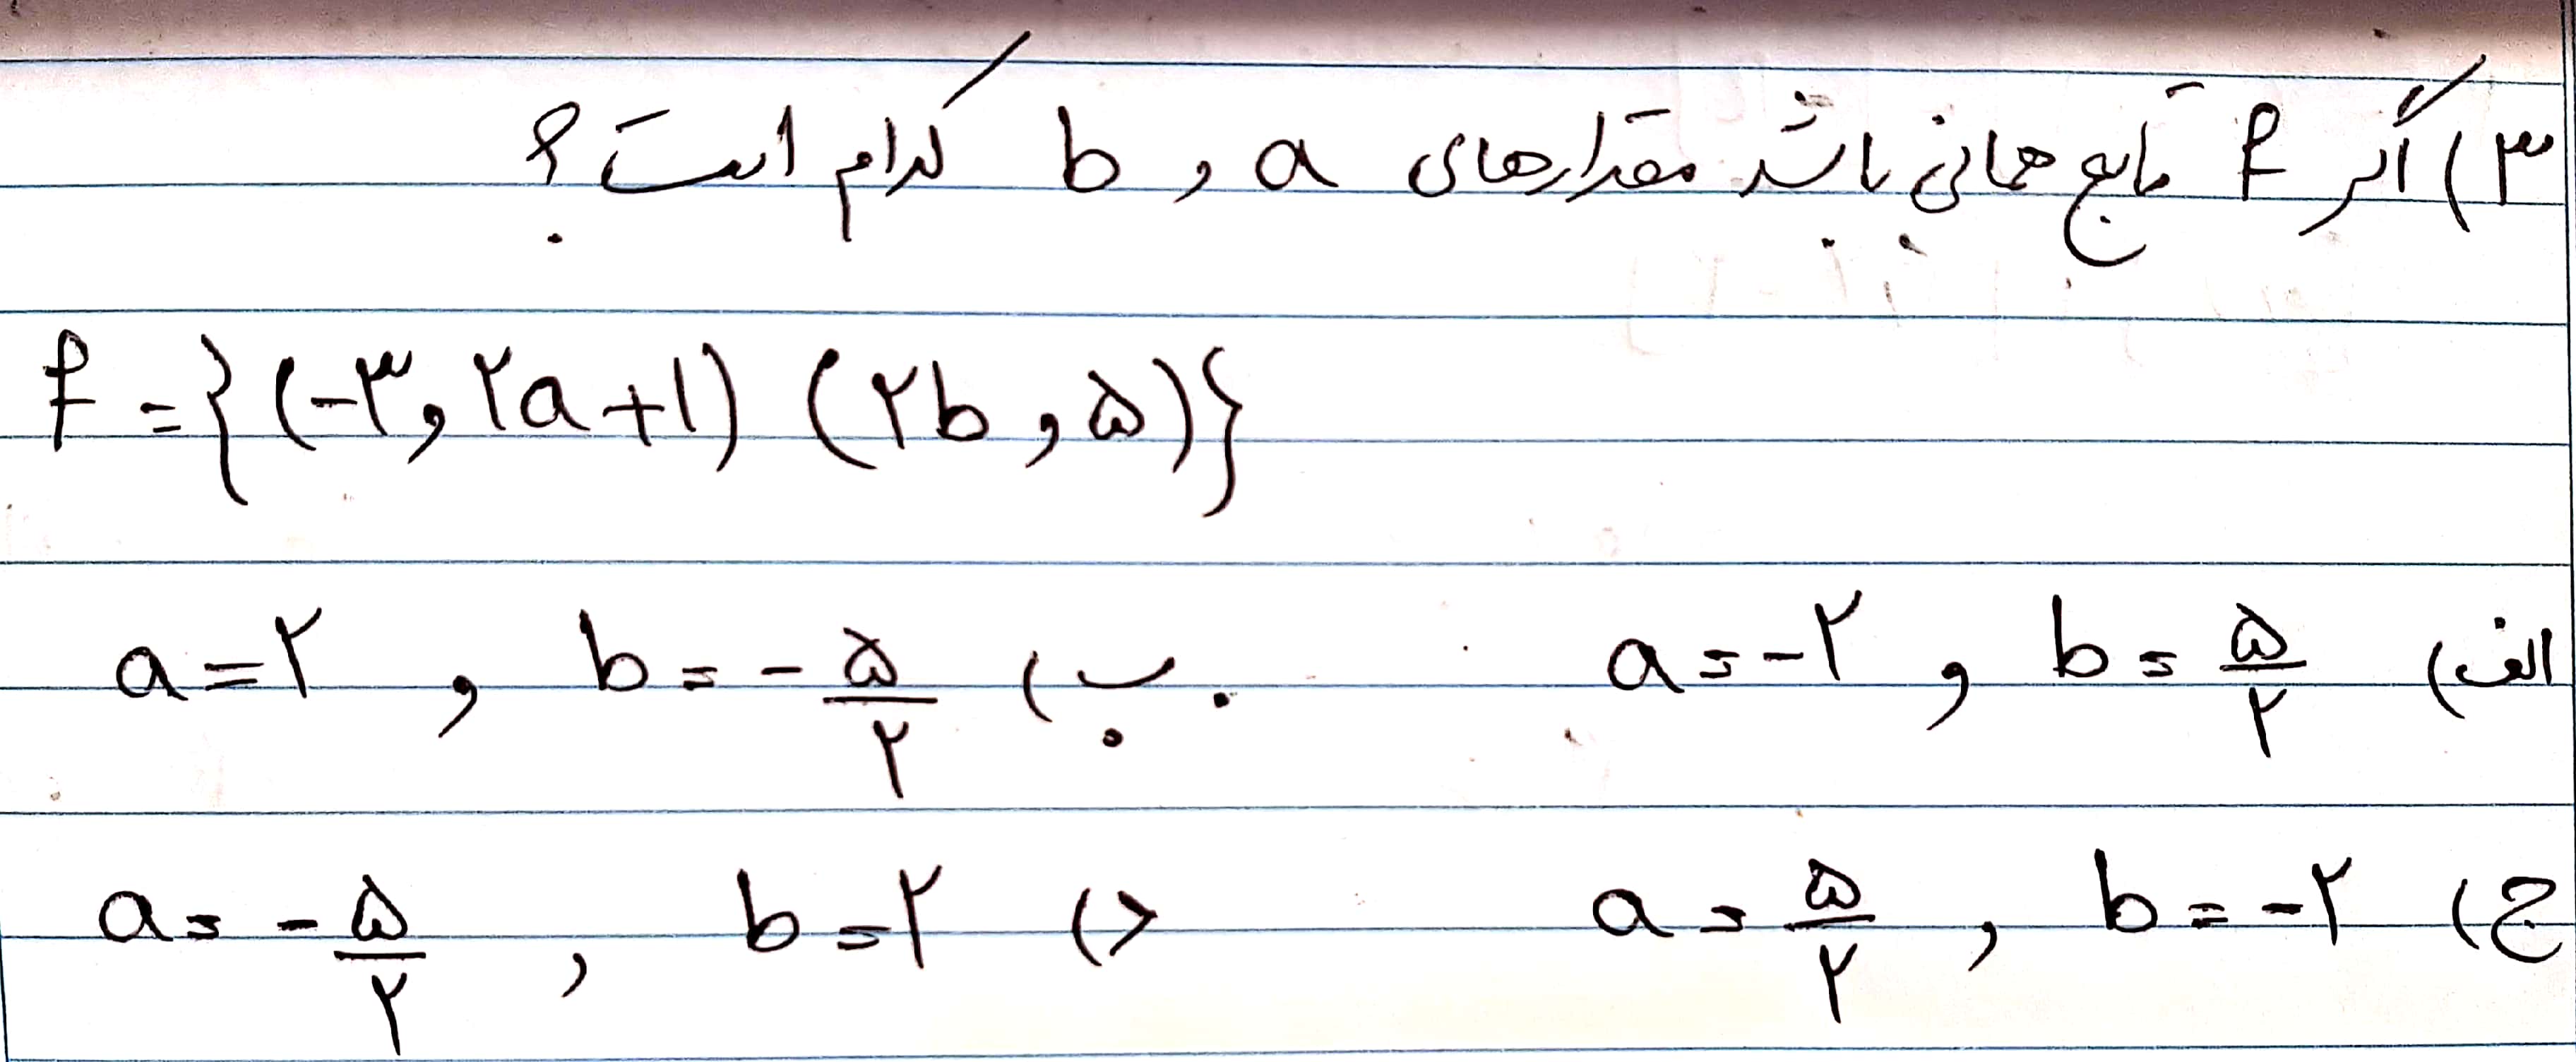 ۳) اگر f تابع همانی باشد مقدارهای a و b کدام است؟
f = {(-۳, ۲a+۱) (۲b, ۵)}
الف) a = -۲ , b = ۵/۲ ب) a = ۲ , b = -۵/۲
ج) a = ۵/۲ , b = -۲ د) a = -۵/۲ , b = ۲